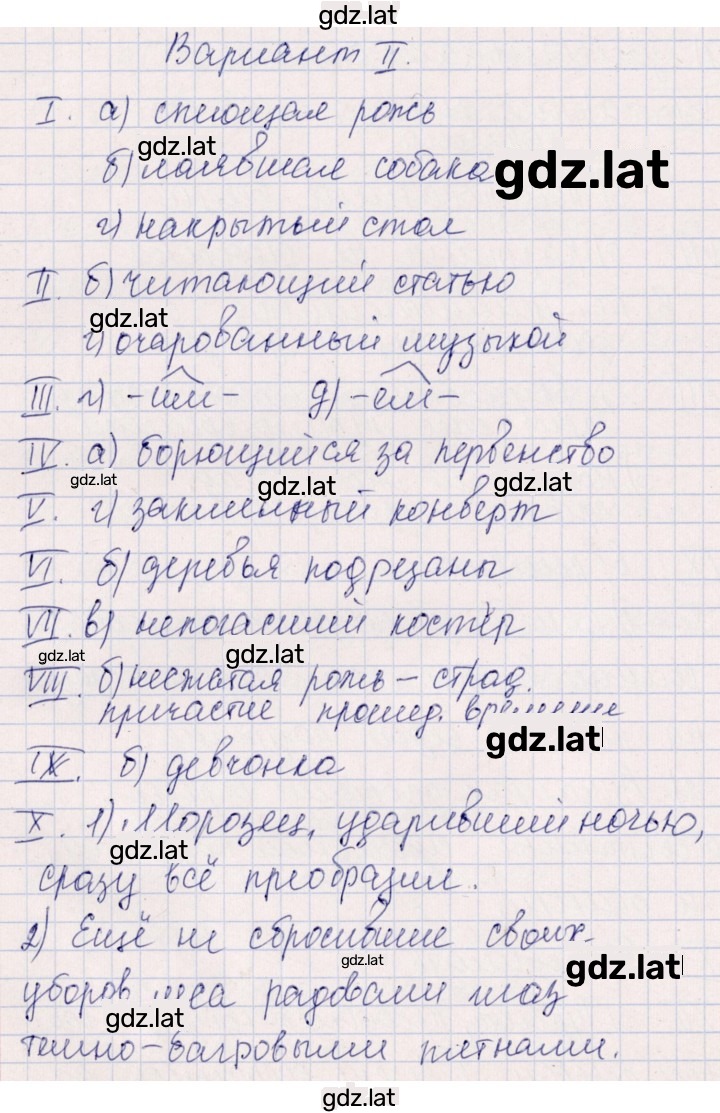 gdz.lat
Вариант II.
I. а) спеющая рожь
gdz.lat
б) лаявшая собака
gdz.lat
г) накрытый стол
II. б) читающий статью
gdz.lat
г) очарованный музыкой
III. г) -им- д) -ем-
IV. а) борющийся за первенство
gdz.lat gdz.lat gdz.lat
V. г) заклеенный конверт
VI. б) деревья подрезаны
VII. в) непогасший костёр
gdz.lat gdz.lat
VIII. б) несжатая рожь – страд.
причастие прошед. времени
gdz.lat
IX. б) девчонка
X. 1) Морозец, ударивший ночью,
gdz.lat
сразу всё преобразил.
2) Ещё не сбросившие своих
gdz.lat gdz.lat
уборов леса радовали глаз
gdz.lat
темно-багровыми пятнами.
gdz.lat